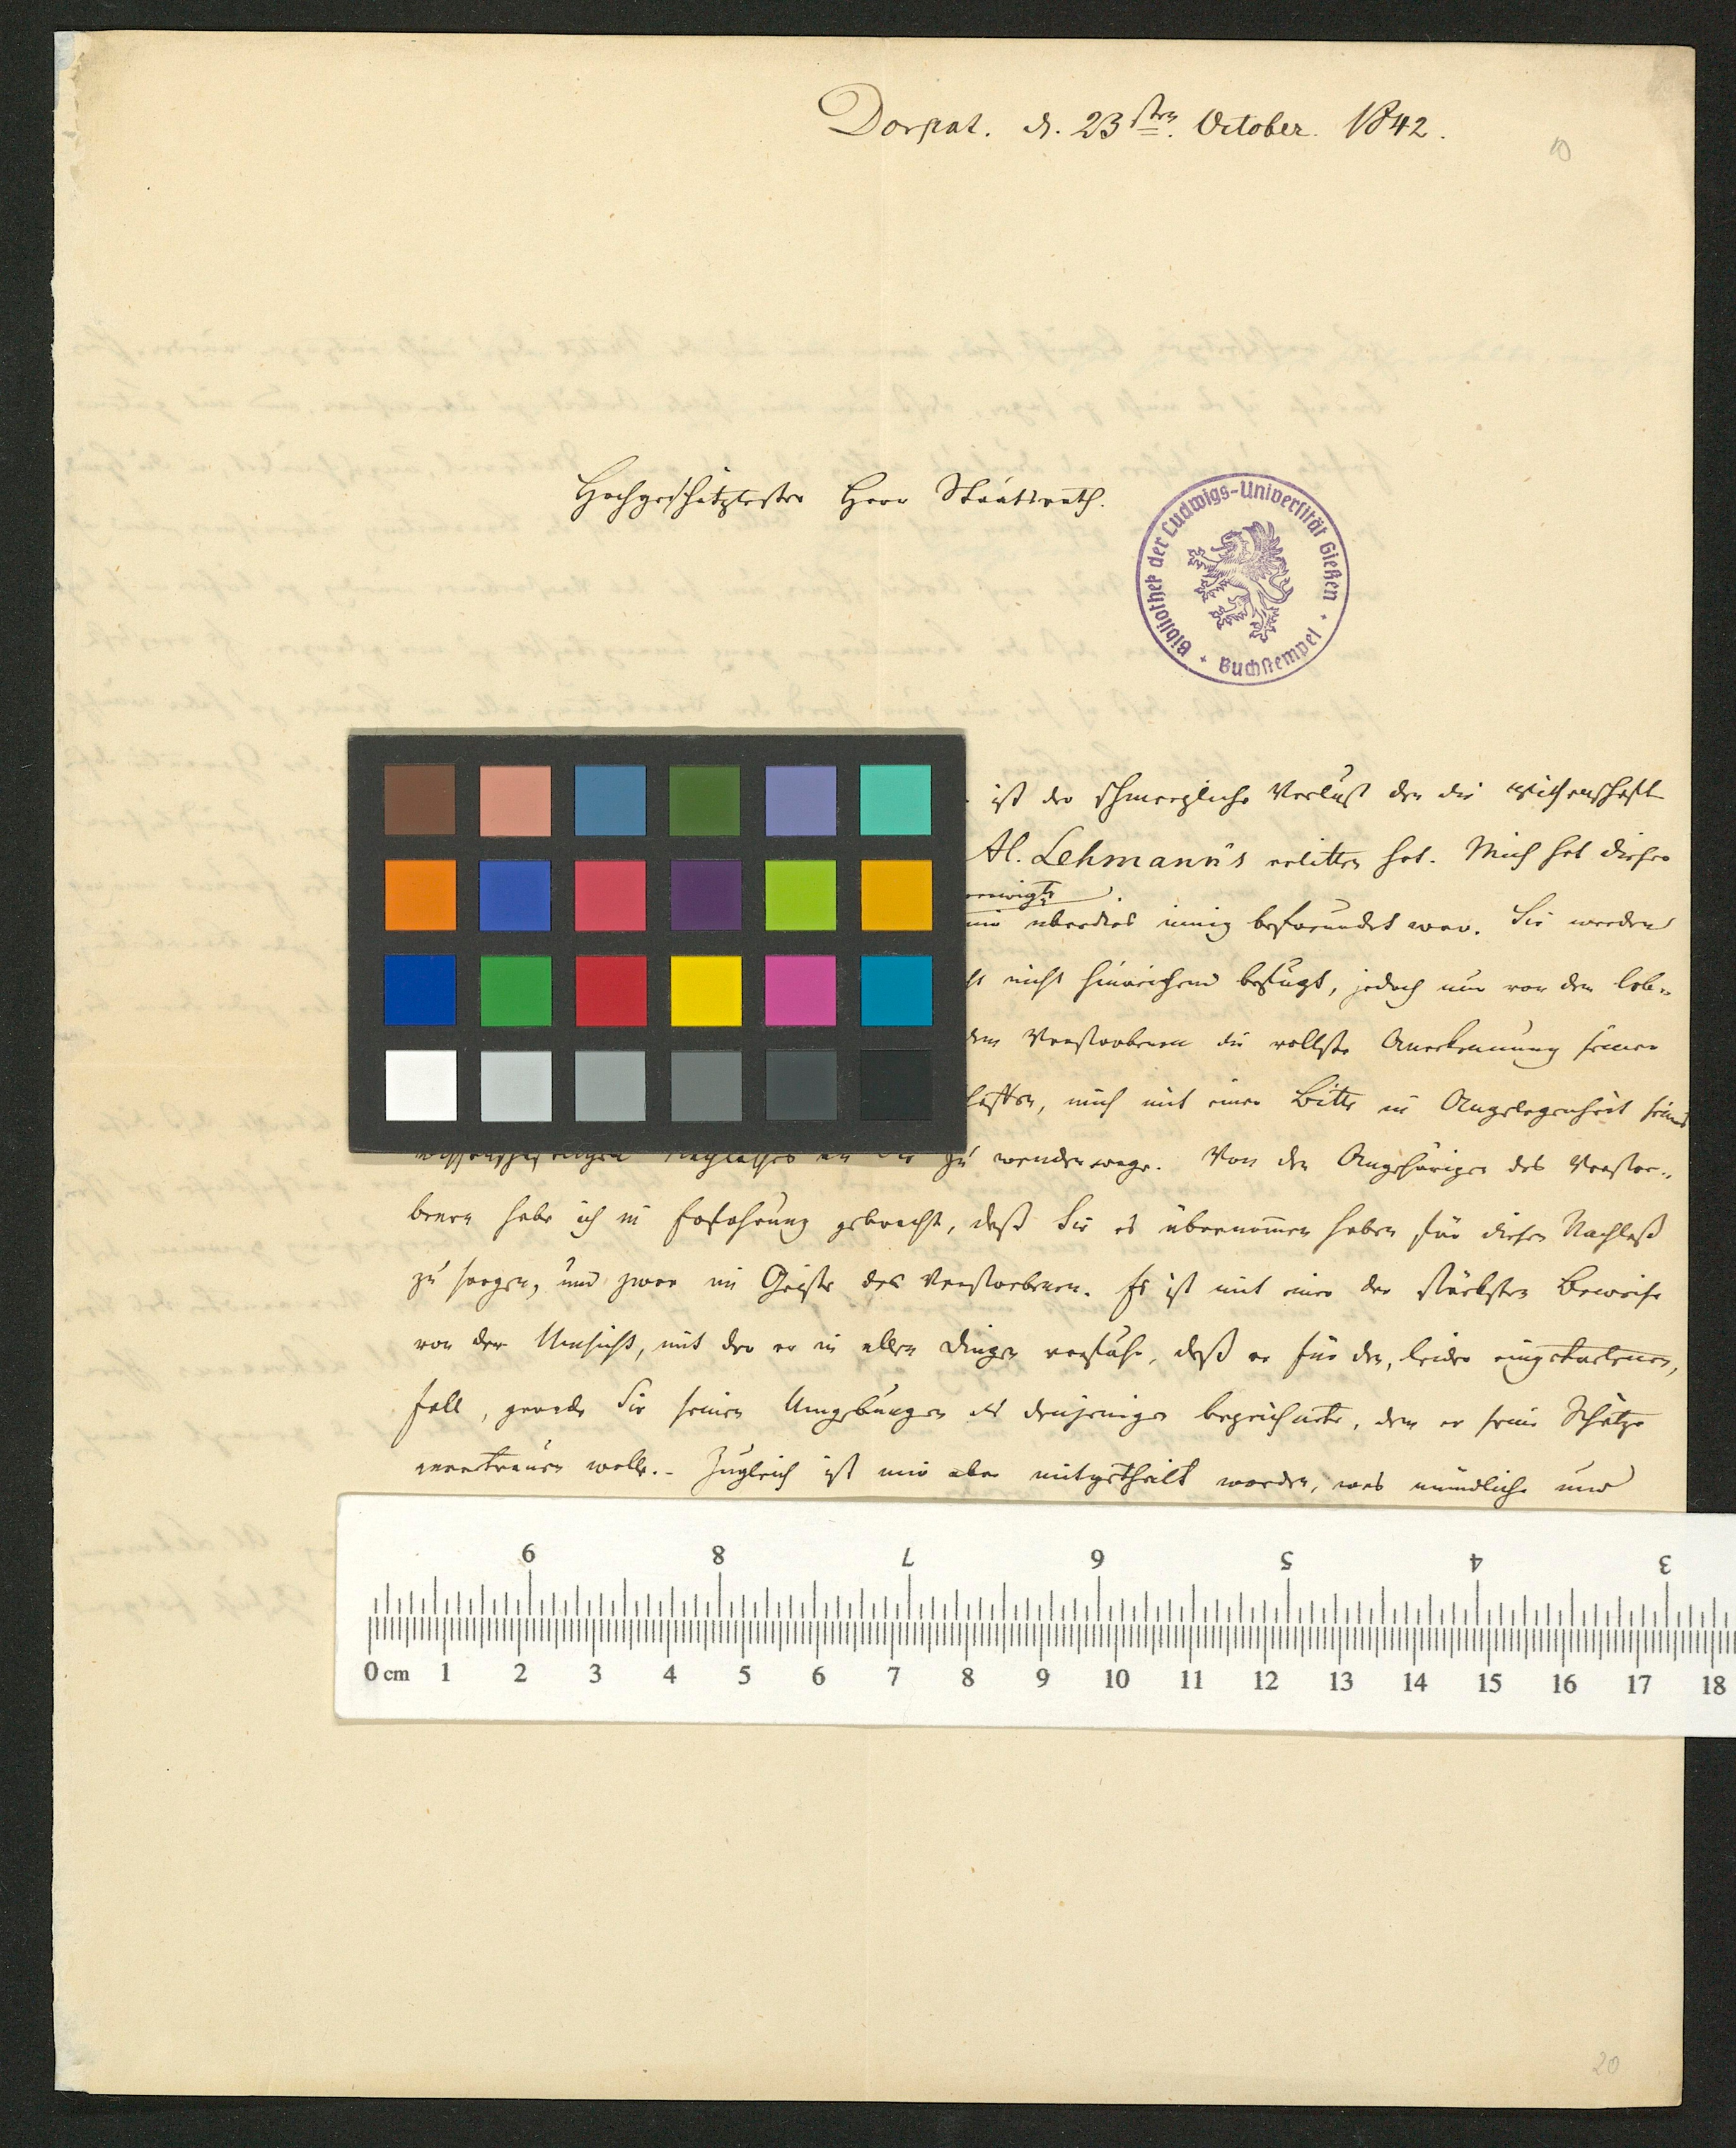 Dorpat. d. 23sten. October. 1842.
10
Hochgeschätztester Herr Staatsrath.
Bibliothek der Ludwigs-Universität Gießen + Buchstempel +
ist der schmerzliche Verlust den die Wissenschaft
Al. Lehmann's erlitten hat. Mich hat dieser
mir überdies innig befreundet war. Sie werden
nicht hinreichend befugt, jedoch nur von dem leb-
dem Verstorbenen die vollste Anerkennung seiner
mich mit einer Bitte in Angelegenheit seines
wissenschaftlichen Nachlasses an Sie zu wenden wage. Von den Angehörigen des Verstor-
benen habe ich in Erfahrung gebracht, daß Sie es übernommen haben für diesen Nachlaß
zu sorgen, und zwar im Geiste des Verstorbenen. Es ist mit einer der stärksten Beweise
von der Umsicht, mit der er in allen Dingen verfuhr, daß er für den, leider eingetretenen,
Fall, gerade Sie seinen Umgebungen als denjenigen bezeichnete, dem er seine Schätze
anvertrauen wolle. - Zugleich ist mir aber mitgetheilt worden, was mündliche und
9 8 7 6 5 4 3
0 cm 1 2 3 4 5 6 7 8 9 10 11 12 13 14 15 16 17 18
20